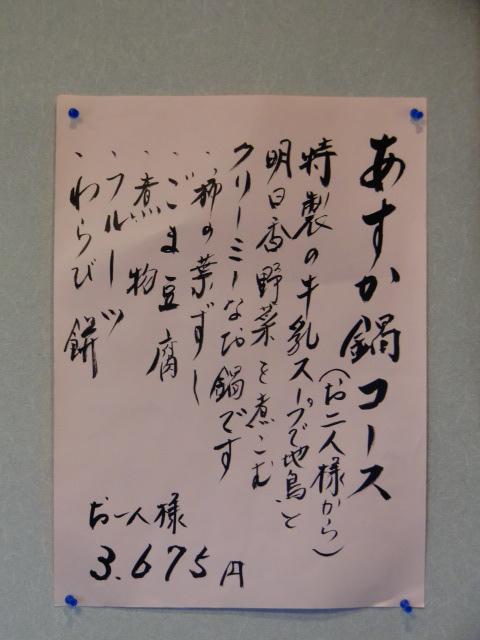 あすか鍋コース
(お二人様から)
特製の牛乳スープで地鳥と
明日香野菜を煮こむ
クリーミーなお鍋です
・柿の葉ずし
・ごま豆腐
・煮物
・フルーツ
・わらび餅
お一人様
3.675円